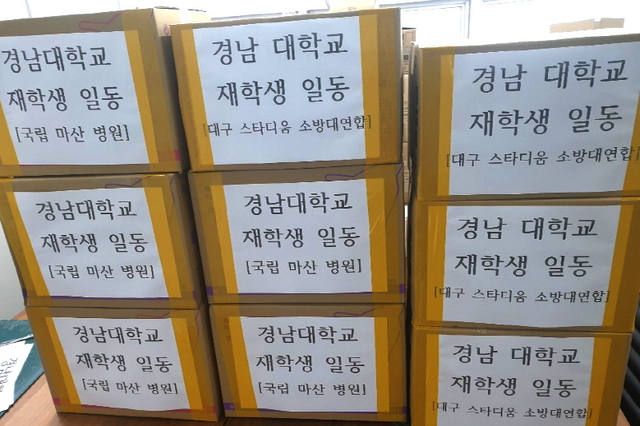 경남대학교
재학생 일동
[국립 마산 병원]
경남 대학교
재학생 일동
[대구 스타디움 소방대연합]
경남 대학교
재학생 일동
[대구 스타디움 소방대연합]
경남대학교
재학생 일동
[국립 마산 병원]
경남대학교
재학생 일동
[국립 마산 병원]
경남 대학교
재학생 일동
[대구 스타디움 소방대연합]
경남대학교
재학생 일동
[국립 마산 병원]
경남대학교
재학생 일동
[국립 마산 병원]
경남 대학교
재학생 일동
[대구 스타디움 소방대연합]